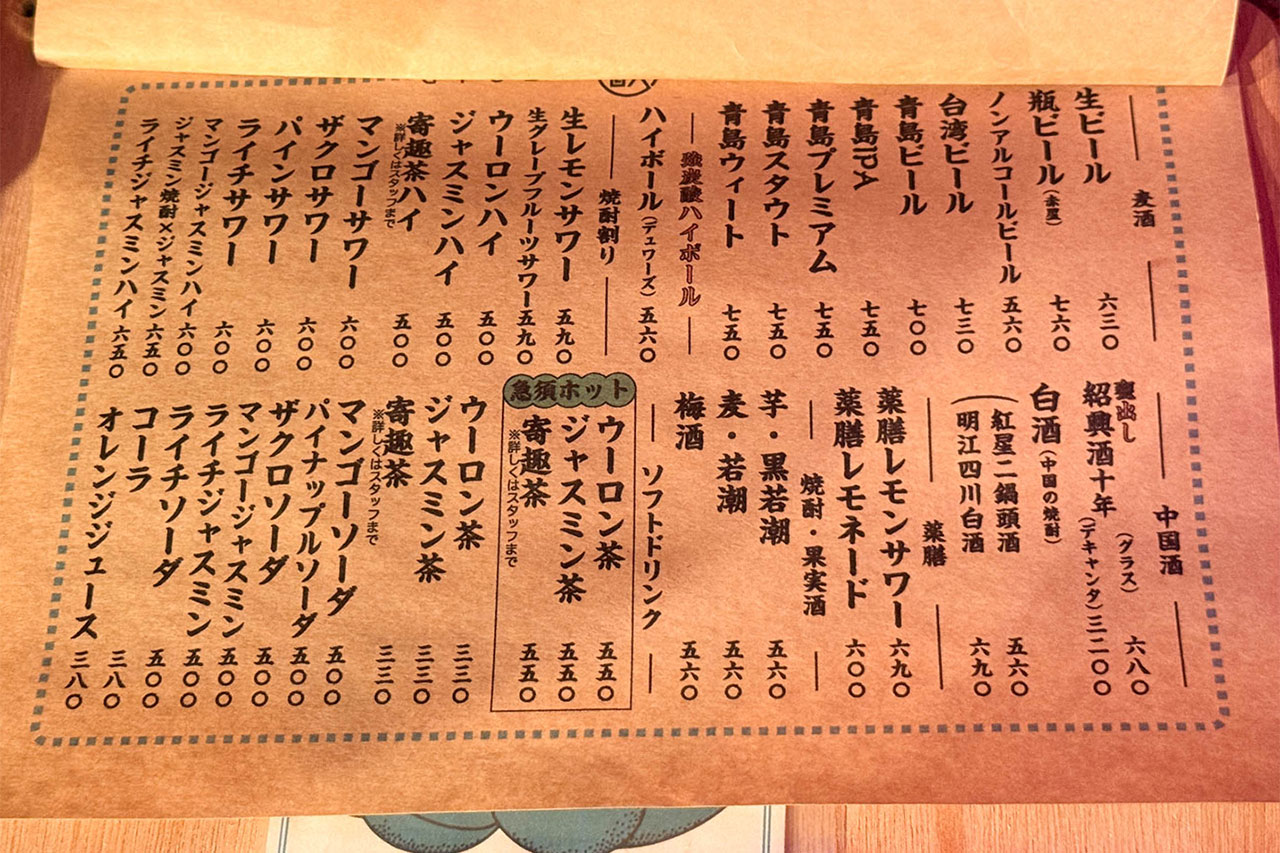 麦酒
生ビール 六三〇
瓶ビール(赤星) 七六〇
ノンアルコールビール 五六〇
台湾ビール 七三〇
青島ビール 七〇〇
青島IPA 七五〇
青島プレミアム 七五〇
青島スタウト 七五〇
青島ウィート 七五〇
強炭酸ハイボール
ハイボール(デュワーズ) 五六〇
焼酎割り
生レモンサワー 五九〇
生グレープフルーツサワー 五九〇
ウーロンハイ 五〇〇
ジャスミンハイ 五〇〇
寄趣茶ハイ 五〇〇
※詳しくはスタッフまで
マンゴーサワー 六〇〇
ザクロサワー 六〇〇
パインサワー 六〇〇
ライチサワー 六〇〇
マンゴージャスミンハイ 六〇〇
ジャスミン焼酎×ジャスミン 六五〇
ライチジャスミンハイ 六五〇
中国酒
甕出し
紹興酒十年
(グラス) 六八〇
(デキャンタ) 三二〇〇
白酒(中国の焼酎)
紅星二鍋頭酒 五六〇
明江四川白酒 六九〇
薬膳
薬膳レモンサワー 六九〇
薬膳レモネード 六〇〇
焼酎・果実酒
芋・黒若潮 五六〇
麦・若潮 五六〇
梅酒 五六〇
ソフトドリンク
急須ホット
ウーロン茶 五五〇
ジャスミン茶 五五〇
寄趣茶 五五〇
※詳しくはスタッフまで
ウーロン茶 三三〇
ジャスミン茶 三三〇
寄趣茶 三三〇
※詳しくはスタッフまで
マンゴーソーダ 五〇〇
パイナップルソーダ 五〇〇
ザクロソーダ 五〇〇
マンゴージャスミン 五〇〇
ライチジャスミン 五〇〇
ライチソーダ 五〇〇
コーラ 三八〇
オレンジジュース 三八〇